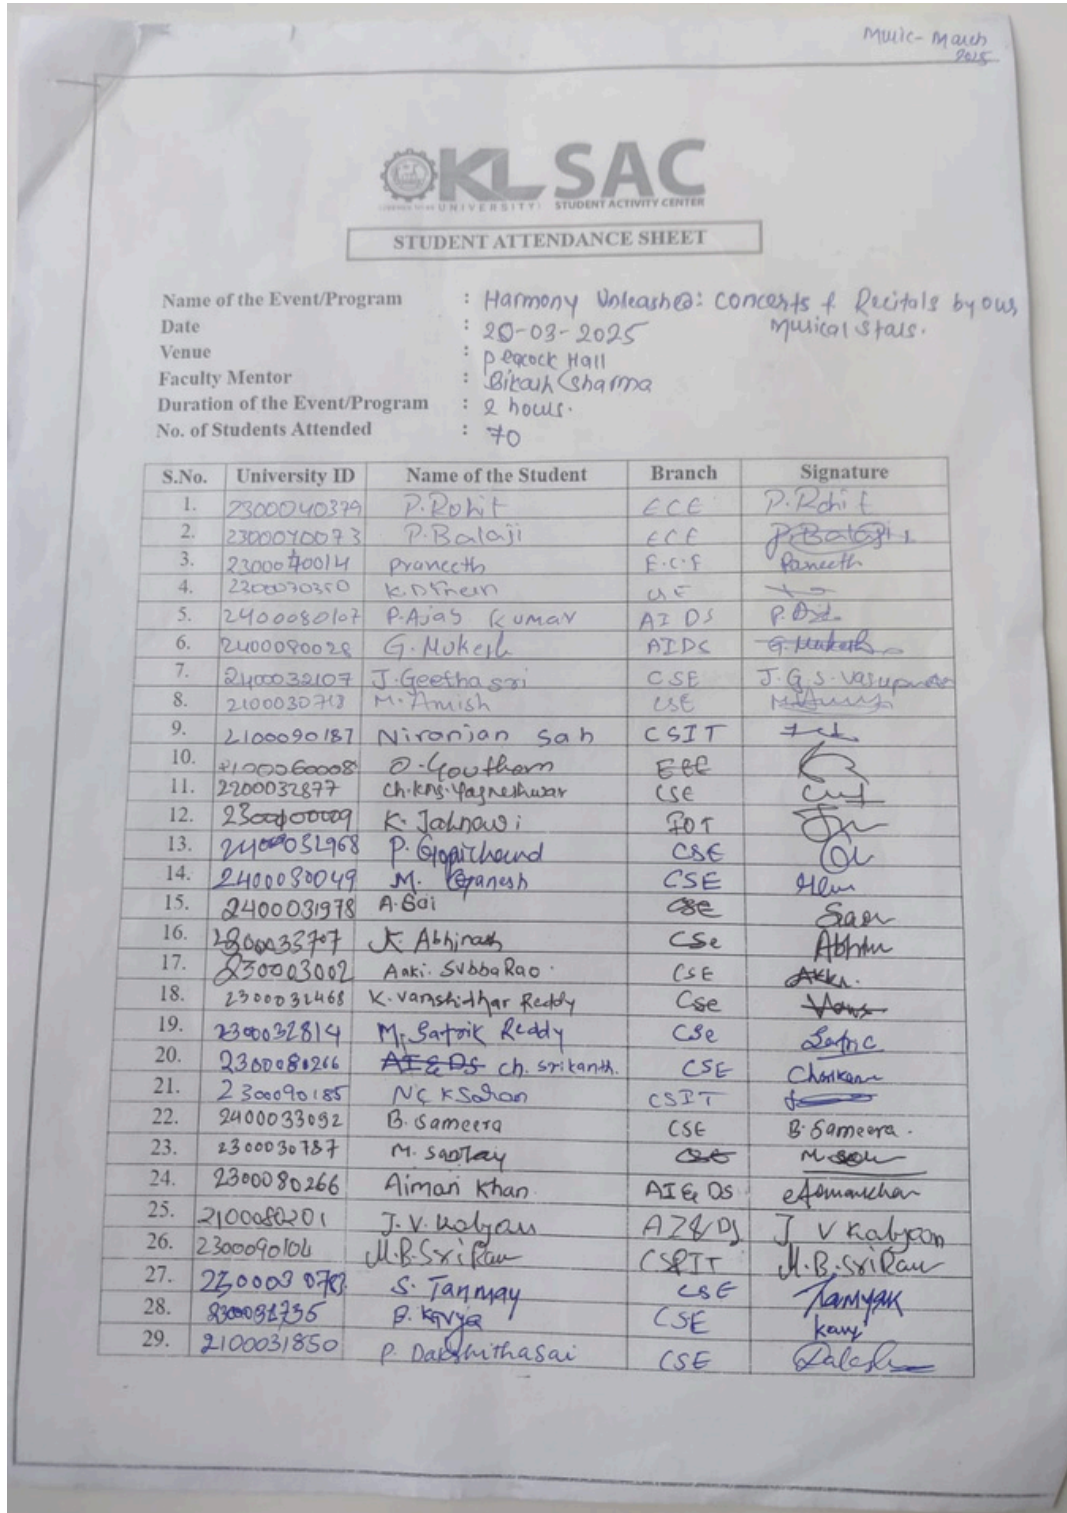 Music- March
2025
KL SAC
UNIVERSITY STUDENT ACTIVITY CENTER
STUDENT ATTENDANCE SHEET
Name of the Event/Program : Harmony Unleashed: Concerts & Recitals by our
Musical Stars.
Date : 20-03-2025
Venue : Peacock Hall
Faculty Mentor : Bikash Sharma
Duration of the Event/Program : 2 hours.
No. of Students Attended : 70
S.No. University ID Name of the Student Branch Signature
1. 2300040379 P.Rohit ECE P.Rohit
2. 2300040073 P.Balaji ECE P.Balaji
3. 2300040014 Praneeth E.C.E Paneeth
4. 2300030350
5. 2400080107 P.Ajay Kumar AI DS
6. 2400080028 G.Mukesh AIDS G.Mukesh
7. 2400032107 J.Geethasri CSE
8. 2100030718 M.Amish CSE
9. 2100090187 Niranjan Sah CSIT
10. 2100060008 O.Goutham EEE
11. 2200032877 Ch.kng.Yagneshwar CSE
12. K. Jahnavi IOT
13. 2400032968 P. Gopichand CSE
14. 2400030049 M. Ganesh CSE
15. 2400031978 A.Sai CSE
16. 2300033707 K. Abhinash CSe
17. 230003002 Aaki. SubbaRao. CSE
18. 2300032468 K.vamshidhar Reddy Cse
19. 2300032814 M. Satvik Reddy CSe
20. 2300080266 AI&DS ch. srikanth. CSE
21. 2300090185 CSIT
22. 2400033092 B.Sameera CSE B.Sameera.
23. 2300030787 M. CSE
24. 2300080266 Aiman Khan AI&DS
25. 2100080201 J.V.Kalyan AI&DS J V Kalyan
26. 2300090104 M.B.SriRam CS&IT M.B.SriRam
27. S. Tanmay CSE
28. B. Kavya CSE Kavy
29. 2100031850 P. DakshithaSai CSE